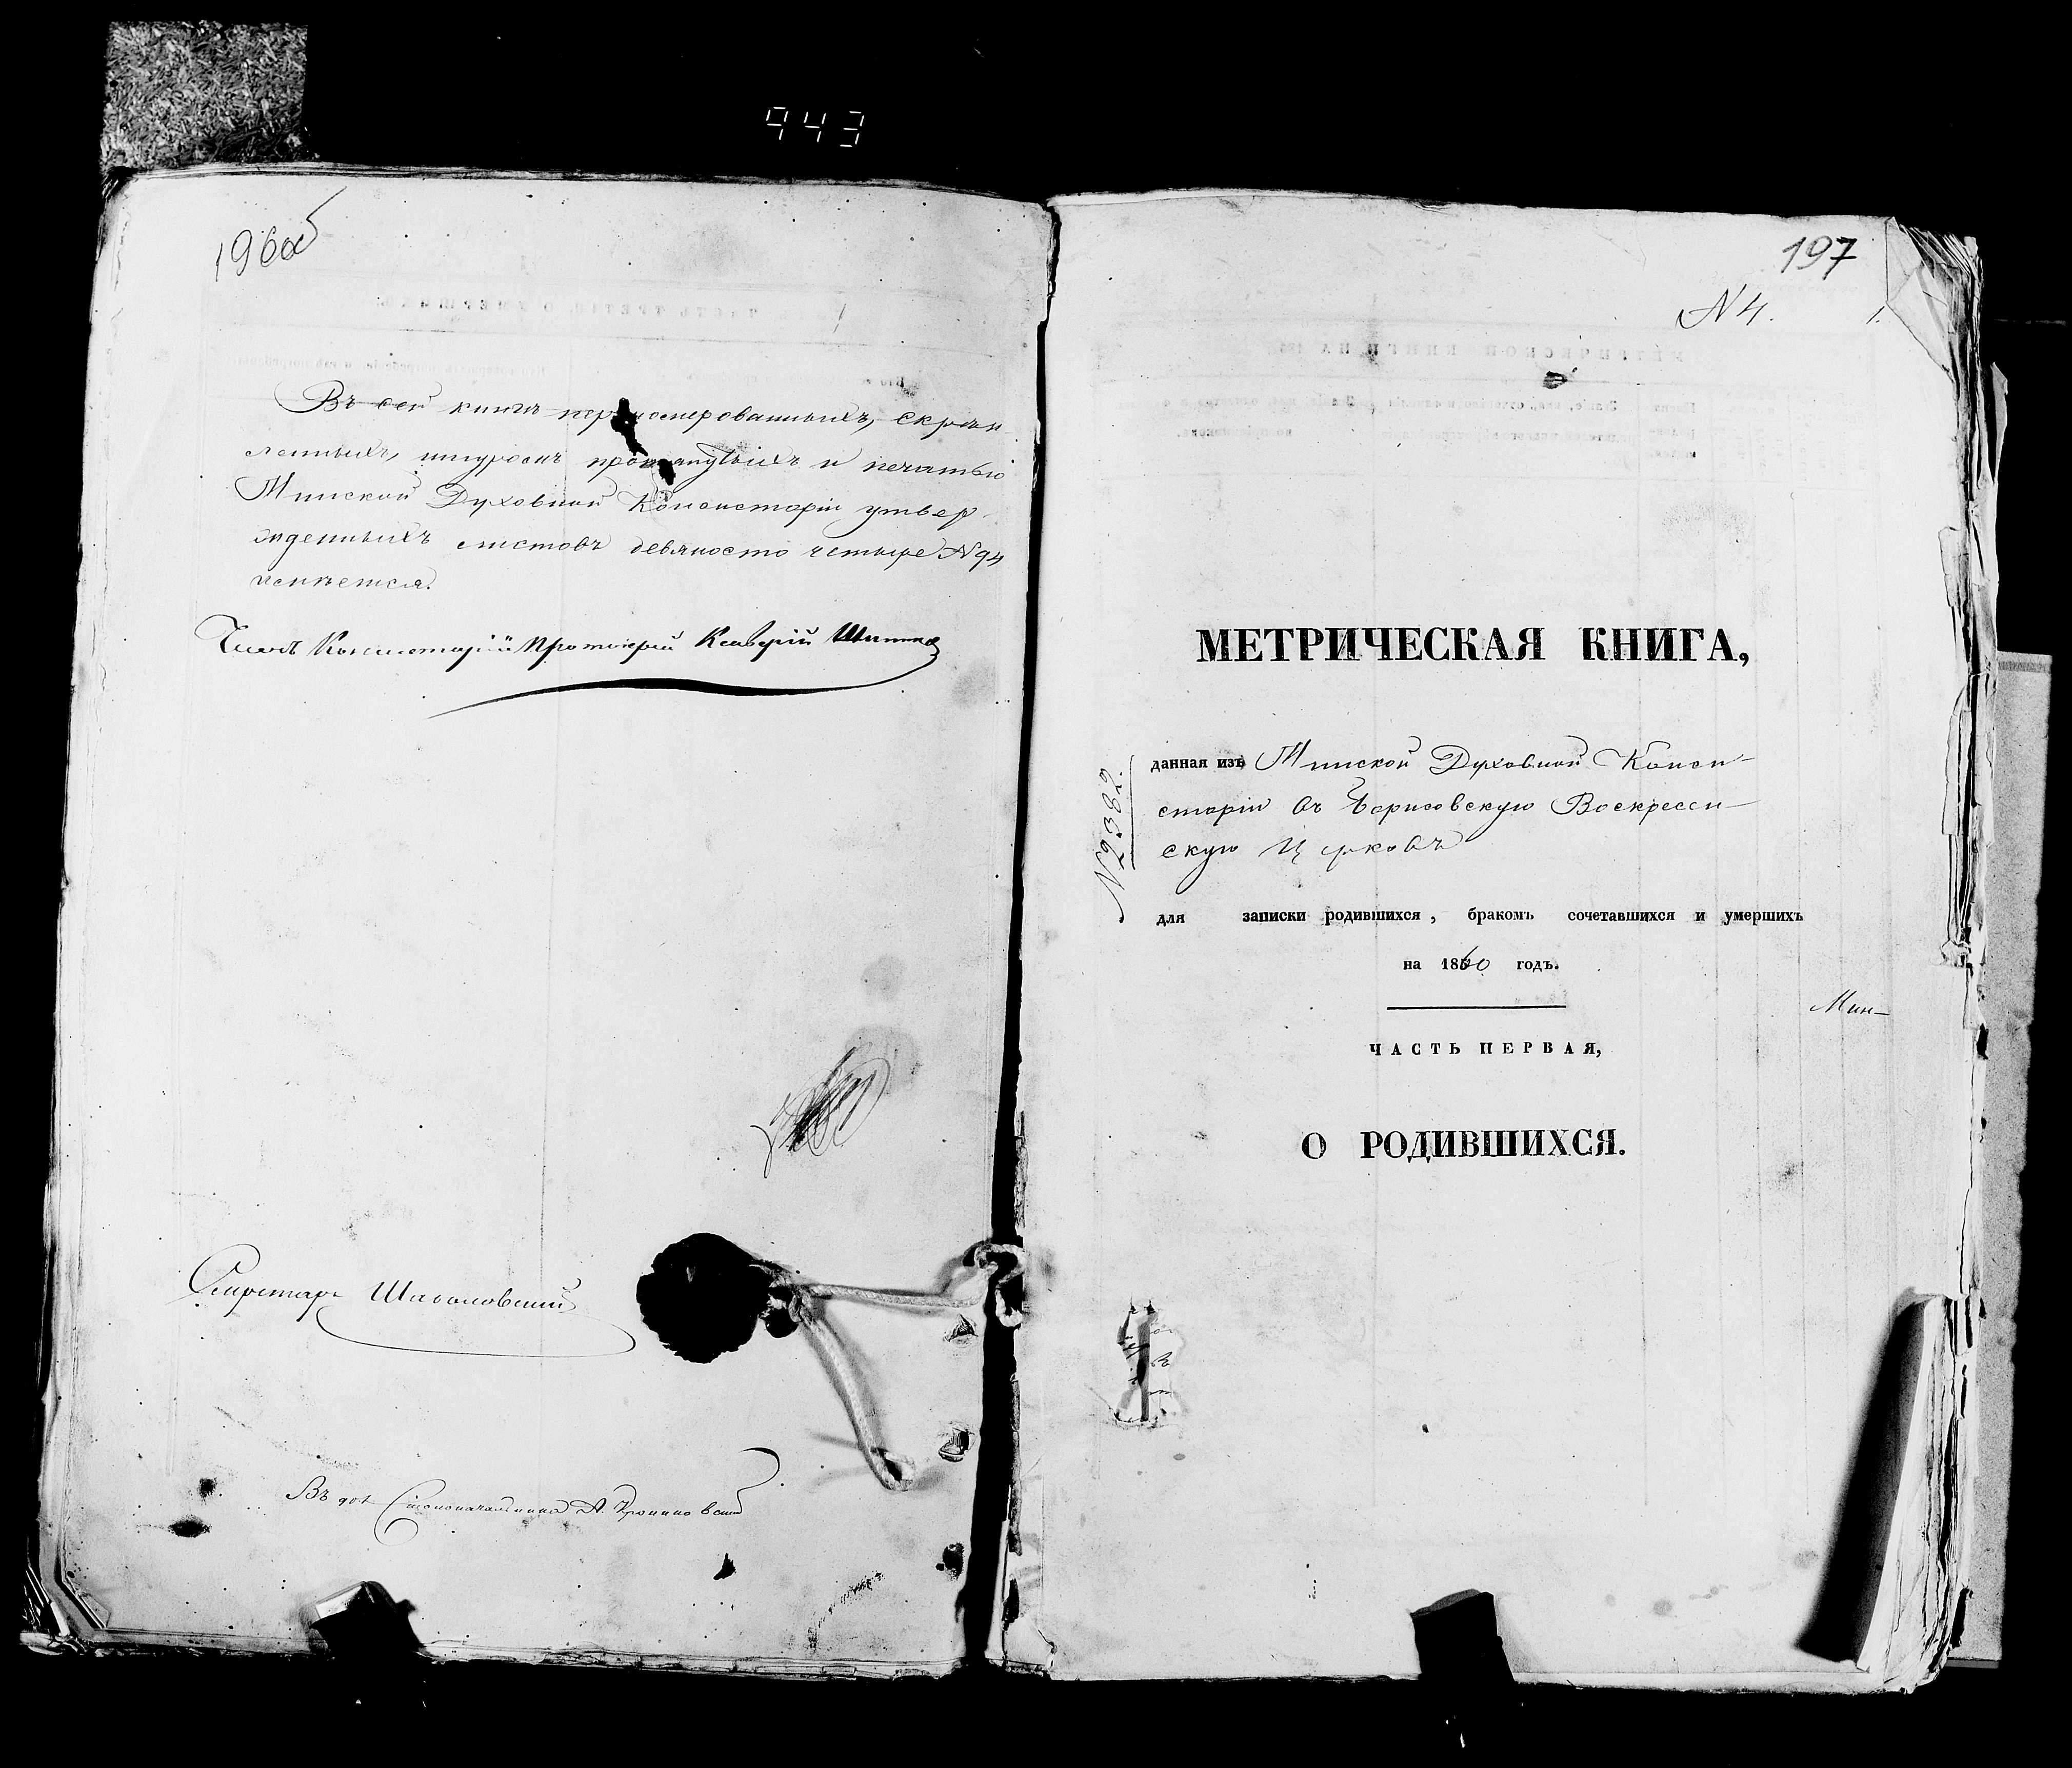 943
196об
Въ сей книгѣ перенумерованныхъ, скрѣп-
ленныхъ, шнуромъ протянутыхъ и печатью
Минской Духовной Консисторіи утвер-
жденныхъ листовъ девяносто четыре №94
числится.
Членъ Консисторіи Протоіерей
Секретарь
Въ дол. Столоначальника А.
197
№4. 1.
МЕТРИЧЕСКАЯ КНИГА,
№2382.
данная изъ Минской Духовной Конси-
сторіи въ Борисовскую Воскресен-
скую Церковь
для записки родившихся, бракомъ сочетавшихся и умершихъ
на 1860 годъ.
Мин-
ЧАСТЬ ПЕРВАЯ,
О РОДИВШИХСЯ.